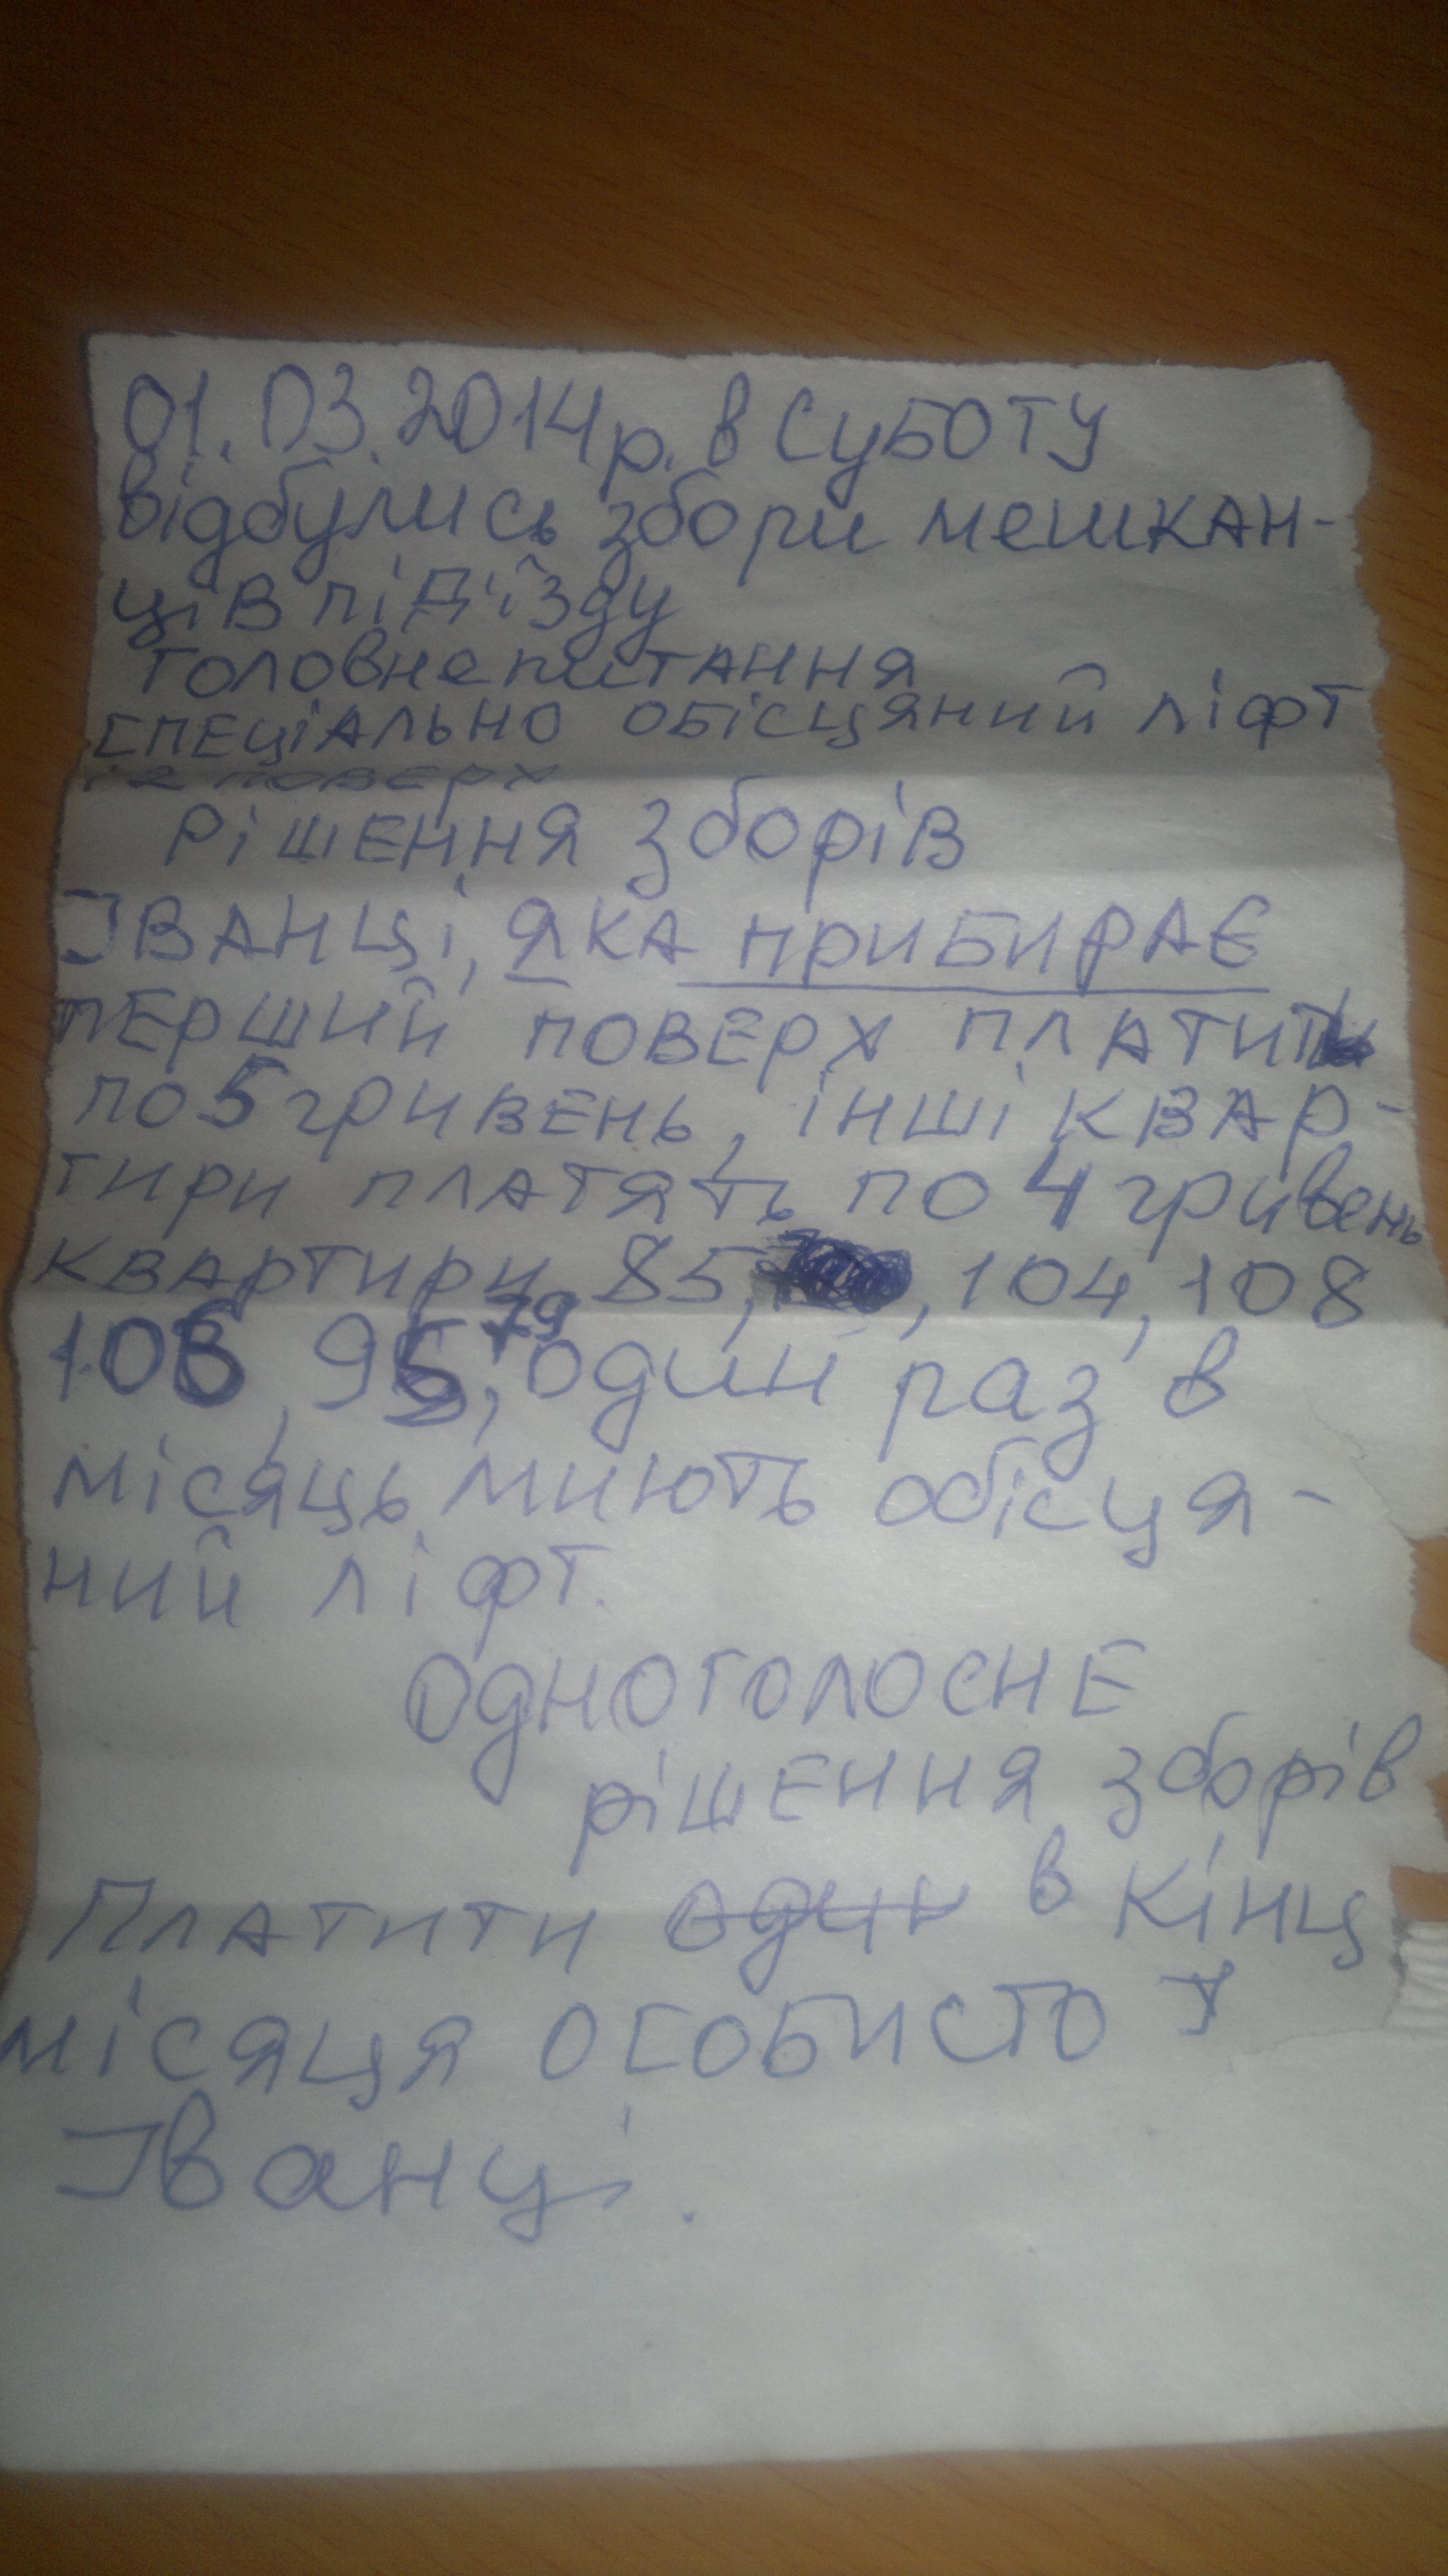 01.03.2014р. в суботу
відбулись збори мешкан-
ців під'їзду
головне питання
спеціально обісцяний ліфт
і 2 поверх
Рішення зборів
Іванці, яка прибирає
перший поверх платить
по 5 гривень, інші квар-
тири платять по 4 гривень
квартири 85, , 104, 108
106, 95, 79 один раз в
місяць миють обісця-
ний ліфт.
Одноголосне
рішення зборів
Платити один в кінц
місяця особисто
Іванці.